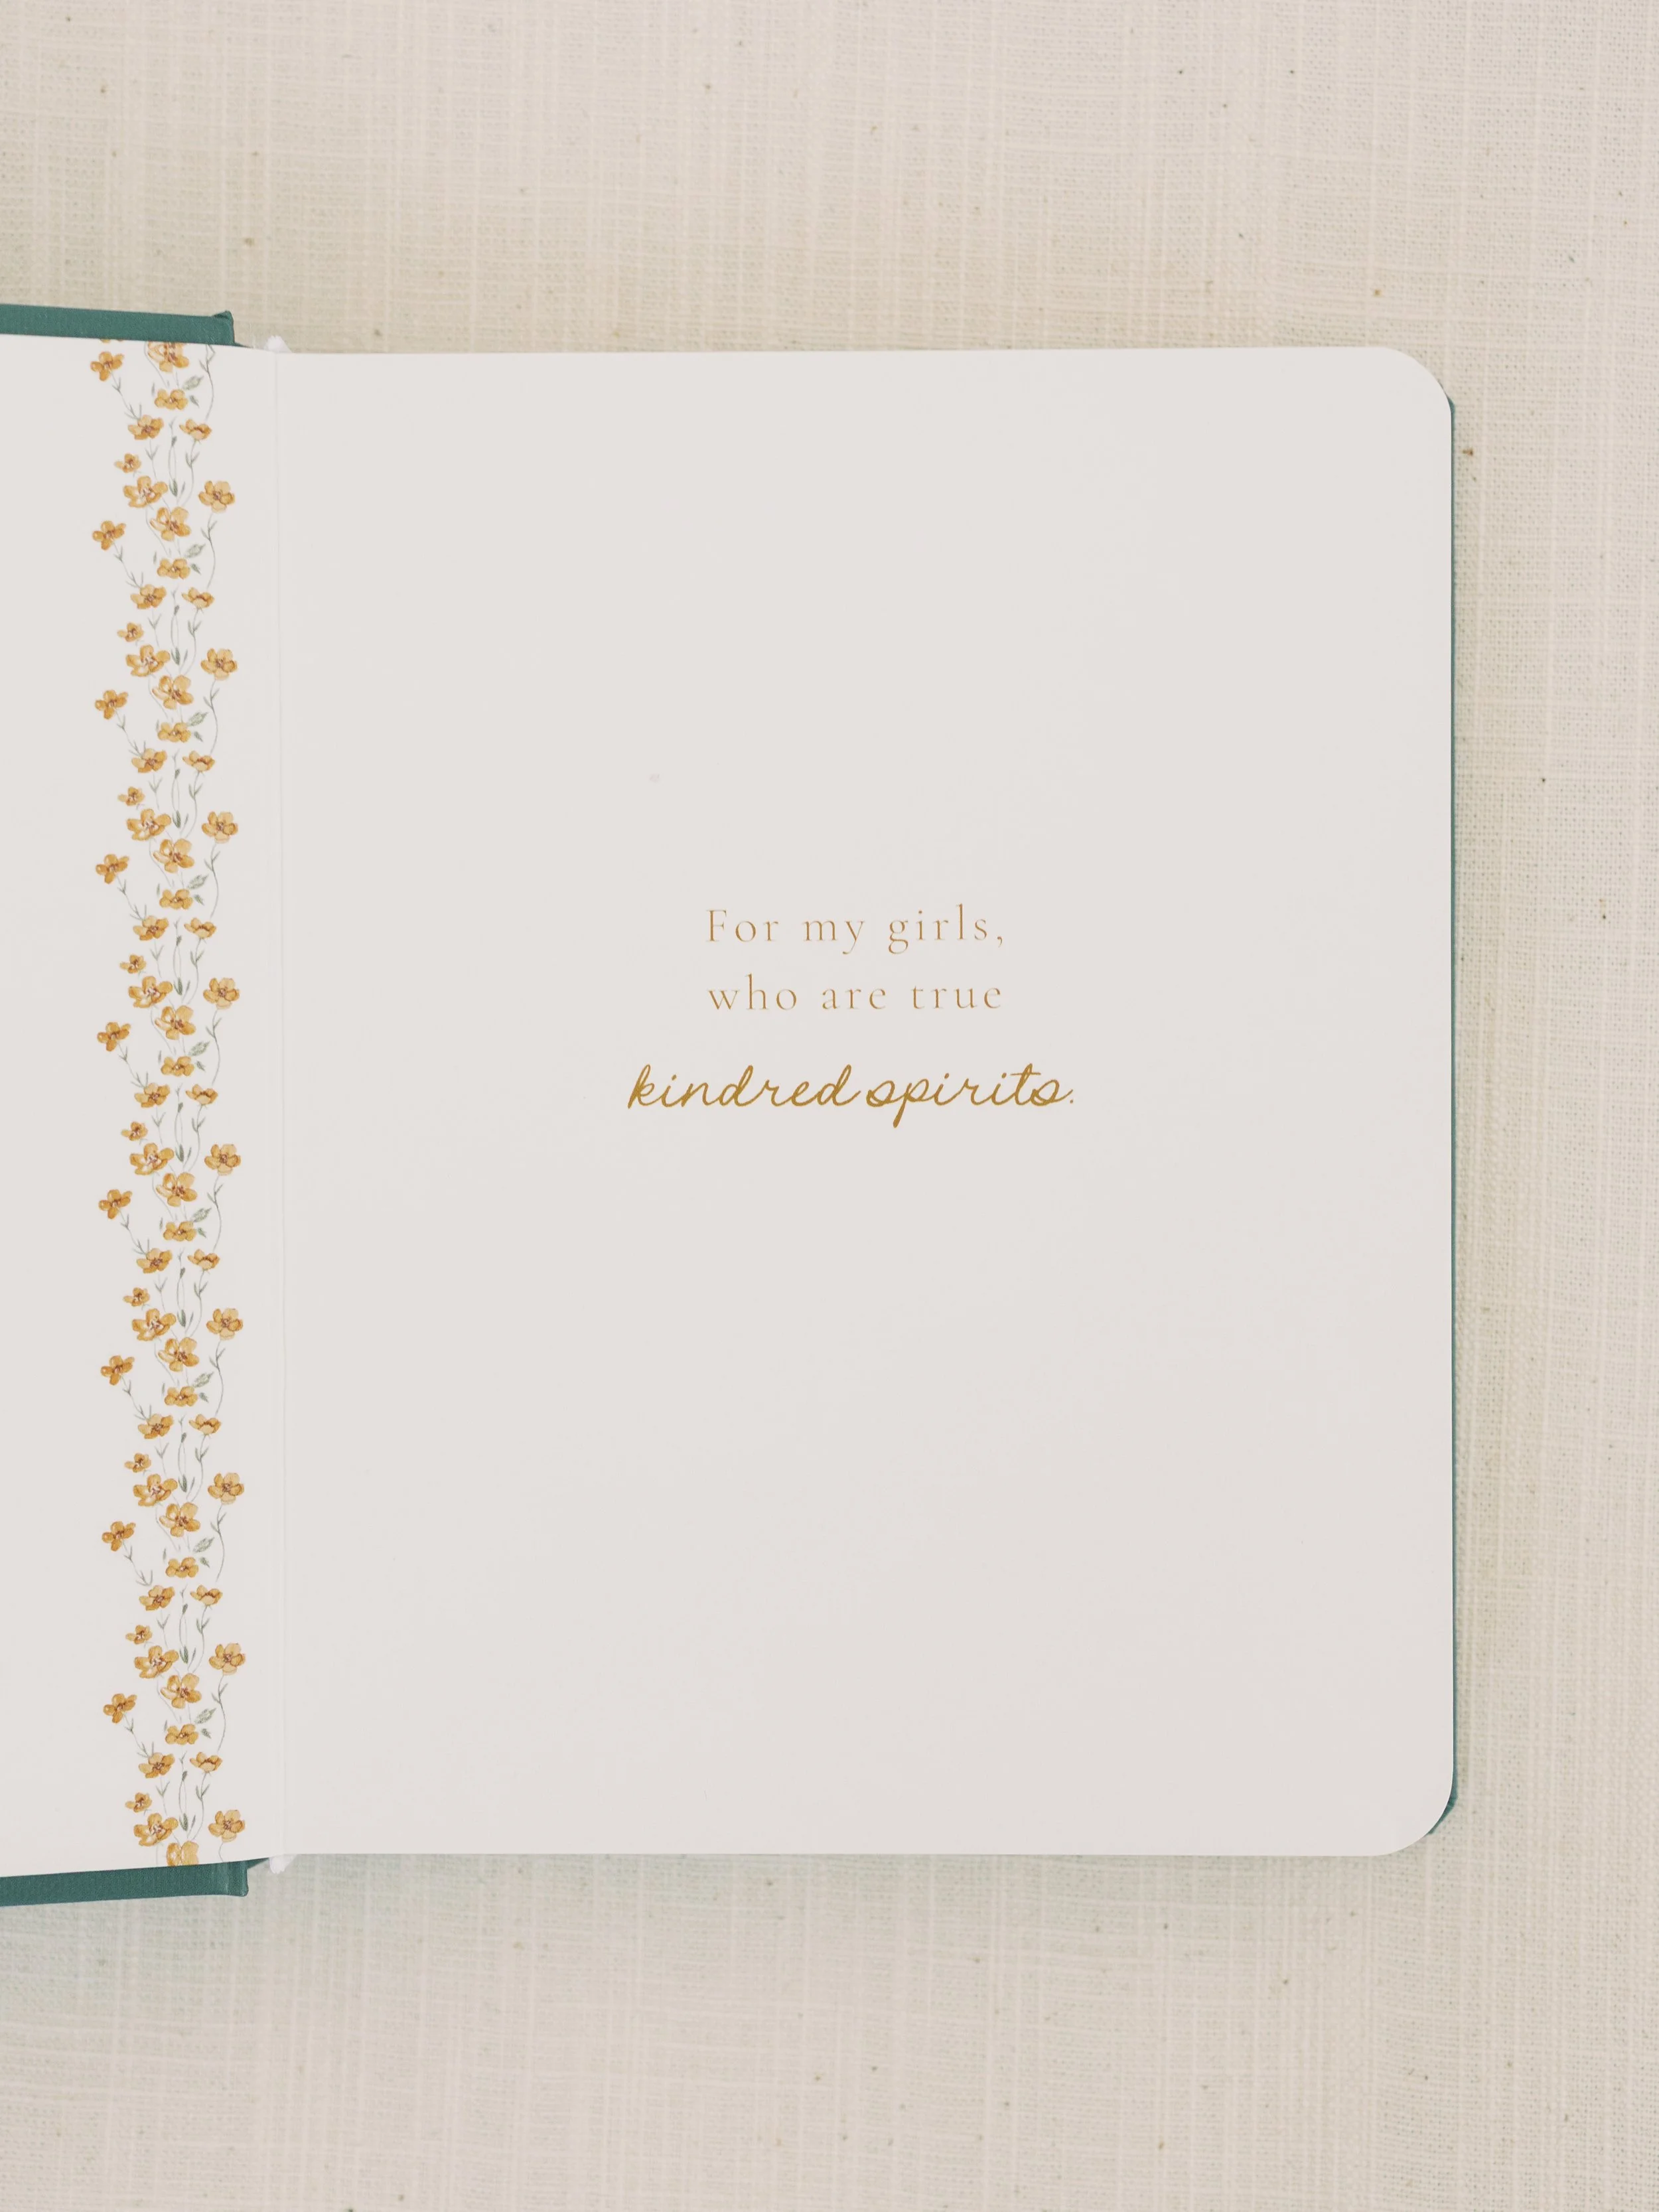 For my girls,
who are true
kindred spirits.